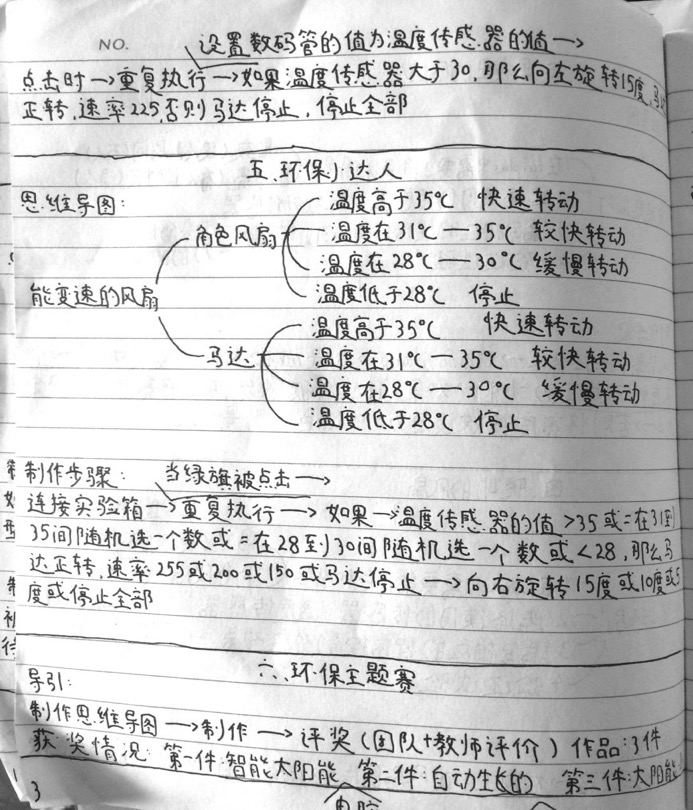 NO.
设置数码管的值为温度传感器的值→
点击时→重复执行→如果温度传感器大于30,那么向左旋转15度,马
正转,速率225,否则马达停止,停止全部
五、环保小达人
思维导图:
温度高于35℃ 快速转动
角色风扇 温度在31℃—35℃ 较快转动
温度在28℃—30℃ 缓慢转动
能变速的风扇 温度低于28℃ 停止
温度高于35℃ 快速转动
马达 温度在31℃—35℃ 较快转动
温度在28℃—30℃ 缓慢转动
温度低于28℃ 停止
制作步骤: 当绿旗被点击→
连接实验箱→重复执行→如果→温度传感器的值>35或=在31到
35间随机选一个数或=在28到30间随机选一个数或<28,那么马
达正转,速率255或200或150或马达停止→向右旋转15度或10度或5
度或停止全部
六、环保主题赛
导引:
制作思维导图→制作→评奖(团队+教师评价) 作品:3件
获奖情况:第一件:智能太阳能 第二件:自动生长的 第三件:太阳能
3
电脑